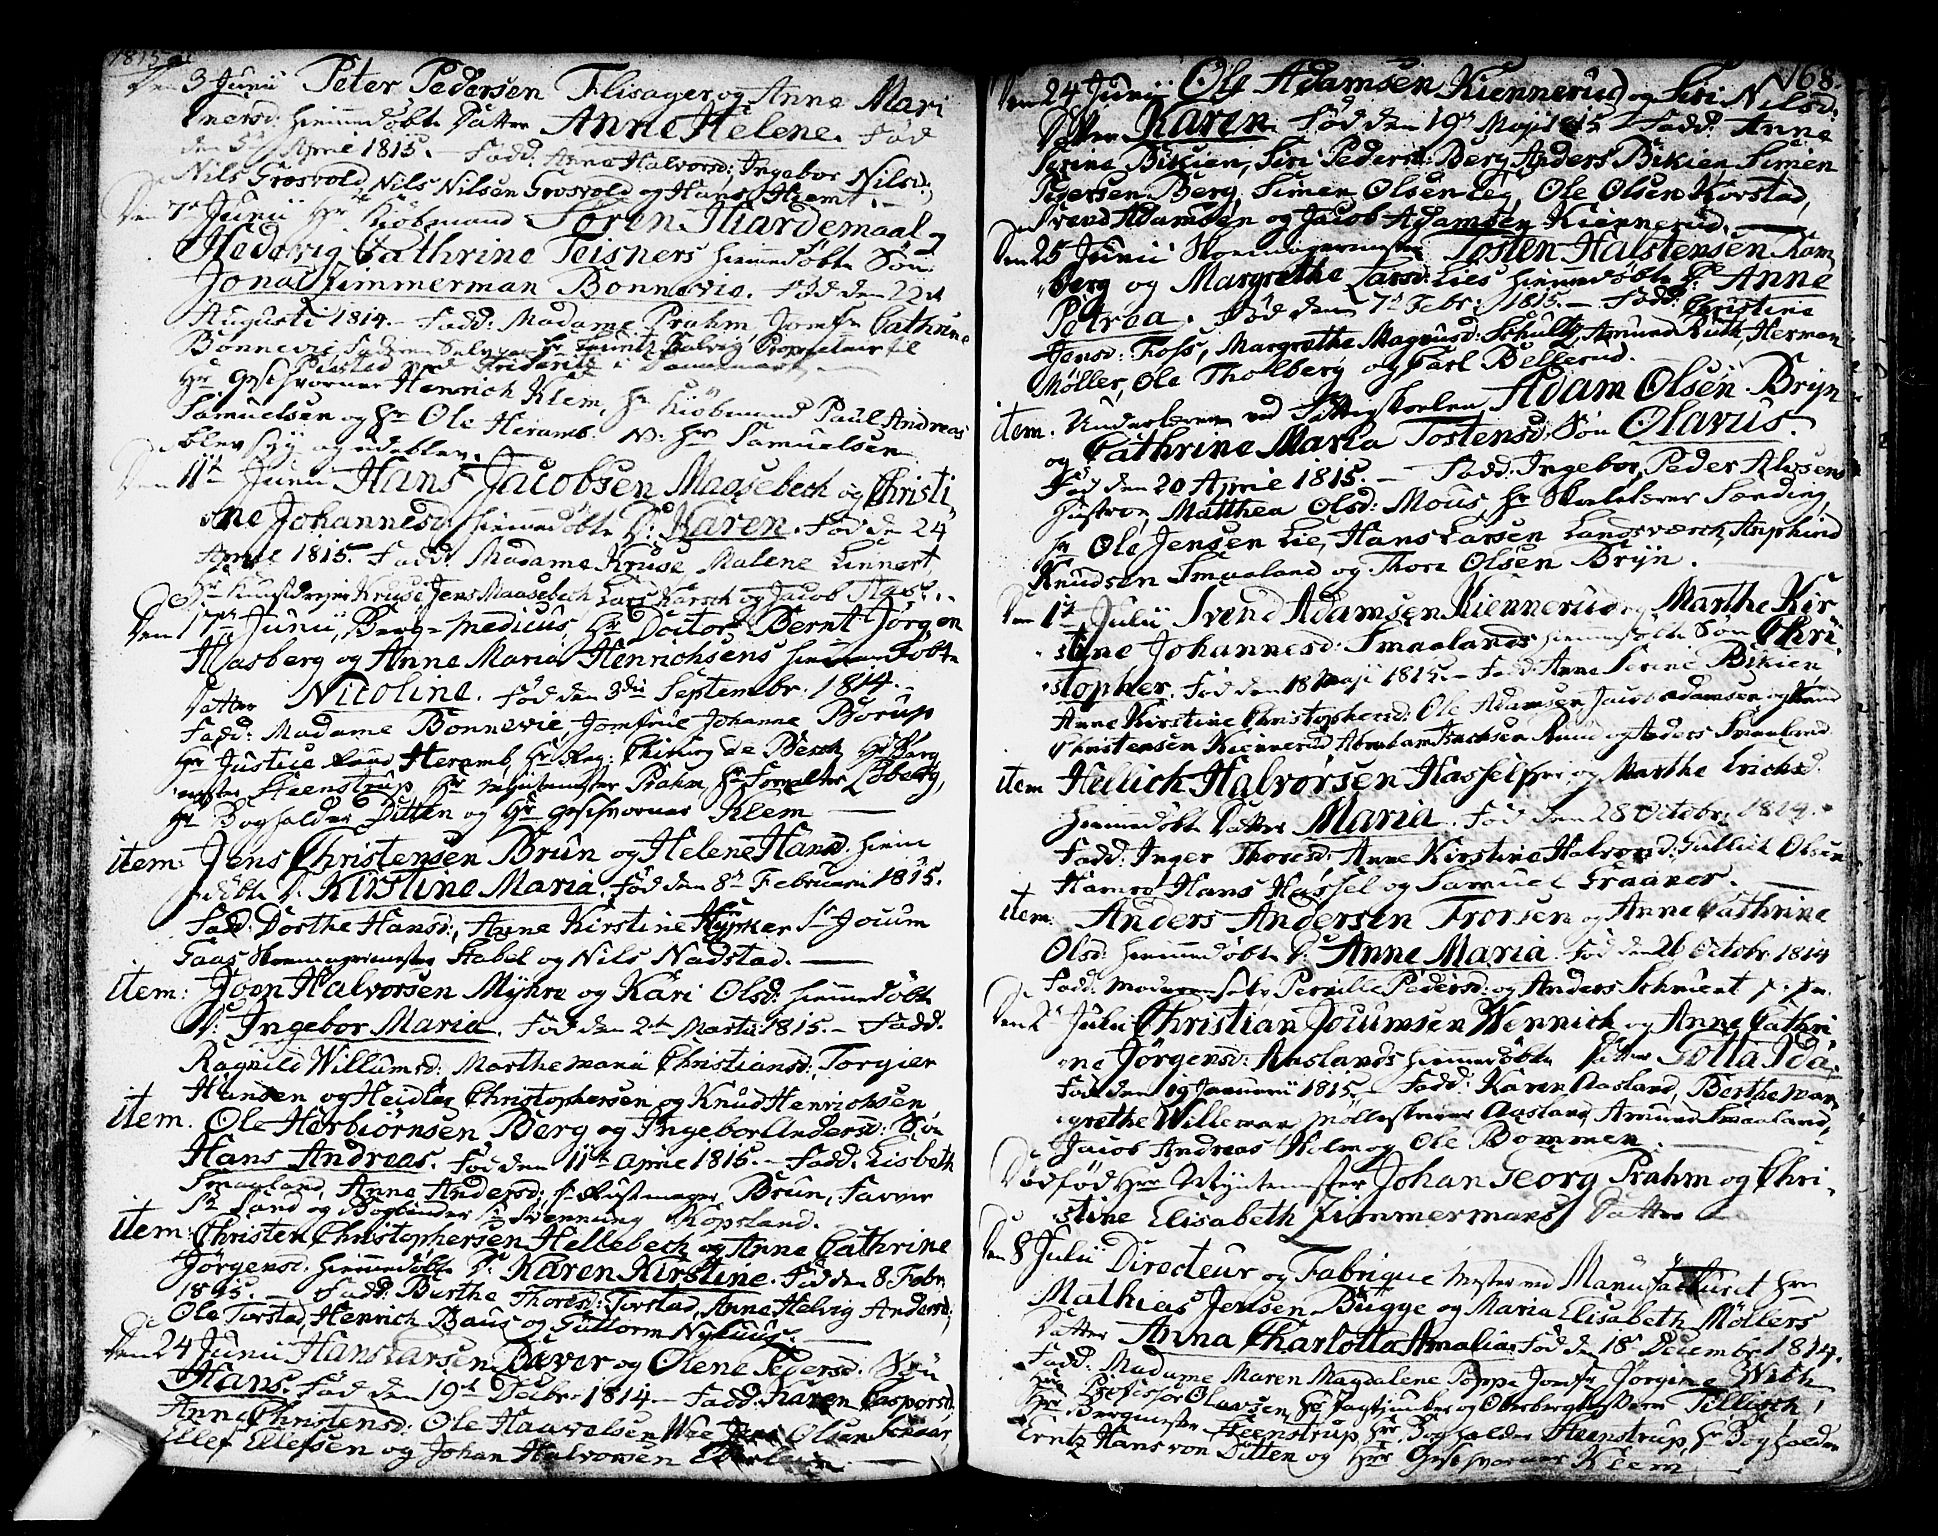 1815
Den 3 Junii Peter Pedersen Flisager og Anne Mari
hiemmedøbte Datter Anne Helene. Fød
den 5 April 1815. – Fadd: Anne Halvorsd: Ingebor Nilsd:
Nils Grosvold, Nils Nilsen Grosvold og Hans Hiemt. –
Den 7de Junii Hr Kiøbmand Søren Hiardemaal og
Hedevig Cathrine Teisners hiemmedøbte Søn
Jonas Zimmerman Bonnevie. Fød den 22d
Augusti 1814. – Fadd: Madame Prahm, Jomfr Cathrine
Bonnevie, Hr Proprietair til
i Dannemark
Hr Geschvorner Henrich Klem, Hr Kiøbmand Paul Andreas
Samuelsen og Hr Ole Heramb. N: Hr Samuelsen
blev syg og udeblev.
Den 11te Junii Hans Jacobsen Maasebech og Christi
ne Johannesd: hiemmedøbte D: Karen. Fød den 24
April 1815. Fadd: Madame Kruse, Malene Linnert
Hr Kruse, Jens Maasebech, Lars Karsch og Jacob
Den 17de Junii, Berg-Medicus, Hr Doctor Bernt Jørgen
Hasberg og Anne Maria Henrichsens hiemmedøbte
Datter Nicoline. Fød den 3die Septembr: 1814. –
Fadd: Madame Bonnevie, Jomfrue Johanne Borup
Hr Justice Raad Heramb, Hr Reg: Chirurg de Besch, Hr Berg
mester Steenstrup, Hr Myntemester Prahm, Hr Forvalter Löberg,
Hr Bogholder Ditten og Hr Geschvorner Klem –
item: Jens Christensen Brun og Helene Hansd: hiem
medøbte D: Kirstine Maria, Fød den 8de Februarii 1815.
Fadd: Dorthe Hansd:, Anne Kirstine Sr Jocum
Gaas Stabel og Nils Nadstad. –
item: Joen Halvorsen Myhre og Kari Olsd: hiemmedøbte
D: Ingebor Maria. Fød den 2de Martii 1815. – Fadd:
Ragnild Willumsd: Marthe Marie Christiansd: Torgier
Hansen og Heidler Christophersen og Knud Henrichsen
item. Ole Herbiørnsen Berg og Ingebor Andersd: Søn
Hans Andreas. Fød den 11te April 1815. – Fadd: Lisbeth
Smaaland, Anne Andersd: Sr Rustmager Brun, Farver
Sr Sand og Bogbinder Sr Svenning Kopsland.
item: Christen Christophersen Hellebech og Anne Cathrine
Jørgensd: hiemmedøbte D: Karen Kirstine. Fød den 8 Febr:
1815. – Fadd: Berthe Thoresd: Torstad, Anne Helvig Andersd:
Ole Torstad, Henrich Baus og Guttorm Nyhuus. –
Den 24 Junii Hans Larsen Bæver og Olene Pedersd: Søn
Hans. Fød den 19de Decbr 1814 – Fadd: Karen Caspersd:
Anne Christensd: Ole Haavelsen Wee, Jens Olsen
Ellef Ellefsen og Johan Halvorsen
168.
Den 24 Junii Ole Adamsen Kiennerud og Siri Nilsd:
Datter Karen. Fød den 19de Maji 1815. – Fadd: Anne
Serine Bikien, Siri Pedersd: Berg, Anders Bikien, Simen
Pedersen Berg, Simen Olsen Lie, Ole Olsen Korstad,
Svend Adamsen og Jacob Adamsen Kiennerud. –
Den 25 Junii Tosten Halstensen Ram
berg og Margrethe Larsd: Lies hiemmedøbte D: Anne
Petrea. Fød den 7de Febr: 1815. – Fadd: Christine
Jensd: Foss, Margrethe Magnusd: Schultz, Amund Ruth, Herman
Møller, Ole Tholberg og Carl Bellerud.
item. Adam Olsen Bryn
og Cathrine Maria Tostensd: Søn Olavus.
Fød den 20 April 1815. – Fadd: Ingebor, Peder
Hustroe, Matthea Olsd: Mous, Hr Skolelærer Sending,
Hr Ole Jensen Lie, Hans Larsen Landsværch, Anphind
Knudsen Smaaland og Thore Olsen Bryn.
Den 1te Julii Svend Adamsen Kiennerud og Marthe Kir
stine Johannesd: Smaalands hiemmedøbte Søn Chri
stopher. Fød den 18 Maji 1815. – Fad: Anne Serine Bikien
Anne Kirstine Christophersd: Ole Adamsen, Jacob Adamsen og
Christensen Kiennerud, Abraham Isachsen Ruud og Anders Smaaland
item Hellich Halvorsen Hassel og Marthe Erichsd:
hiemmedøbte Datter Maria. Fød den 28 Octobr: 1814.
Fadd: Inger Thoresd: Anne Kirstine Halvorsd: Gullich Olsen
Hamro, Hans Hassel og Samuel Graaner. –
item: Anders Andersen Frorsen og Anne Cathrine
Olsd: hiemmedøbte D: Anne Maria. Fød den 26 Octobr: 1814
Fadd: Moderen selv, Pernille Pedersd: og Anders Schmient
Den 2den Julii Christian Jocumsen Wennich og Anne Cathri
ne Jørgensd: Aaslands hiemmedøbte Datter Lotta Ida.
Fød den 19 Januarii 1815. – Fadd: Karen Aasland, Berthe Mar
grethe Willeman, Møllerskriver Aasland, Amund Smaaland,
Jacob Andreas Holm og Ole Bommen. –
Dødfød Hr Myntemester Johan Georg Prahm og Chri
stine Elisabeth Zimmermans Datter –
Den 8 Julii Directeur og Fabrique Mester ved Manufacturet Hr
Mathias Jensen Bügge og Maria Elisabeth Möllers
Datter Anna Charlotta Amalia. Fød den 18 Decembr 1814.
Fadd: Madame Maren Magdalene Poppe, Jomfr Jörgine With
Hr Professor Olavsen, Hr Jagtjunker og Oberbergamts Tillisch,
Hr Bergmester Steenstrup, Hr Bogholder Steenstrup, Hr Bogholder
Erntz Hans von Ditten og Hr Geschvorner Klem –